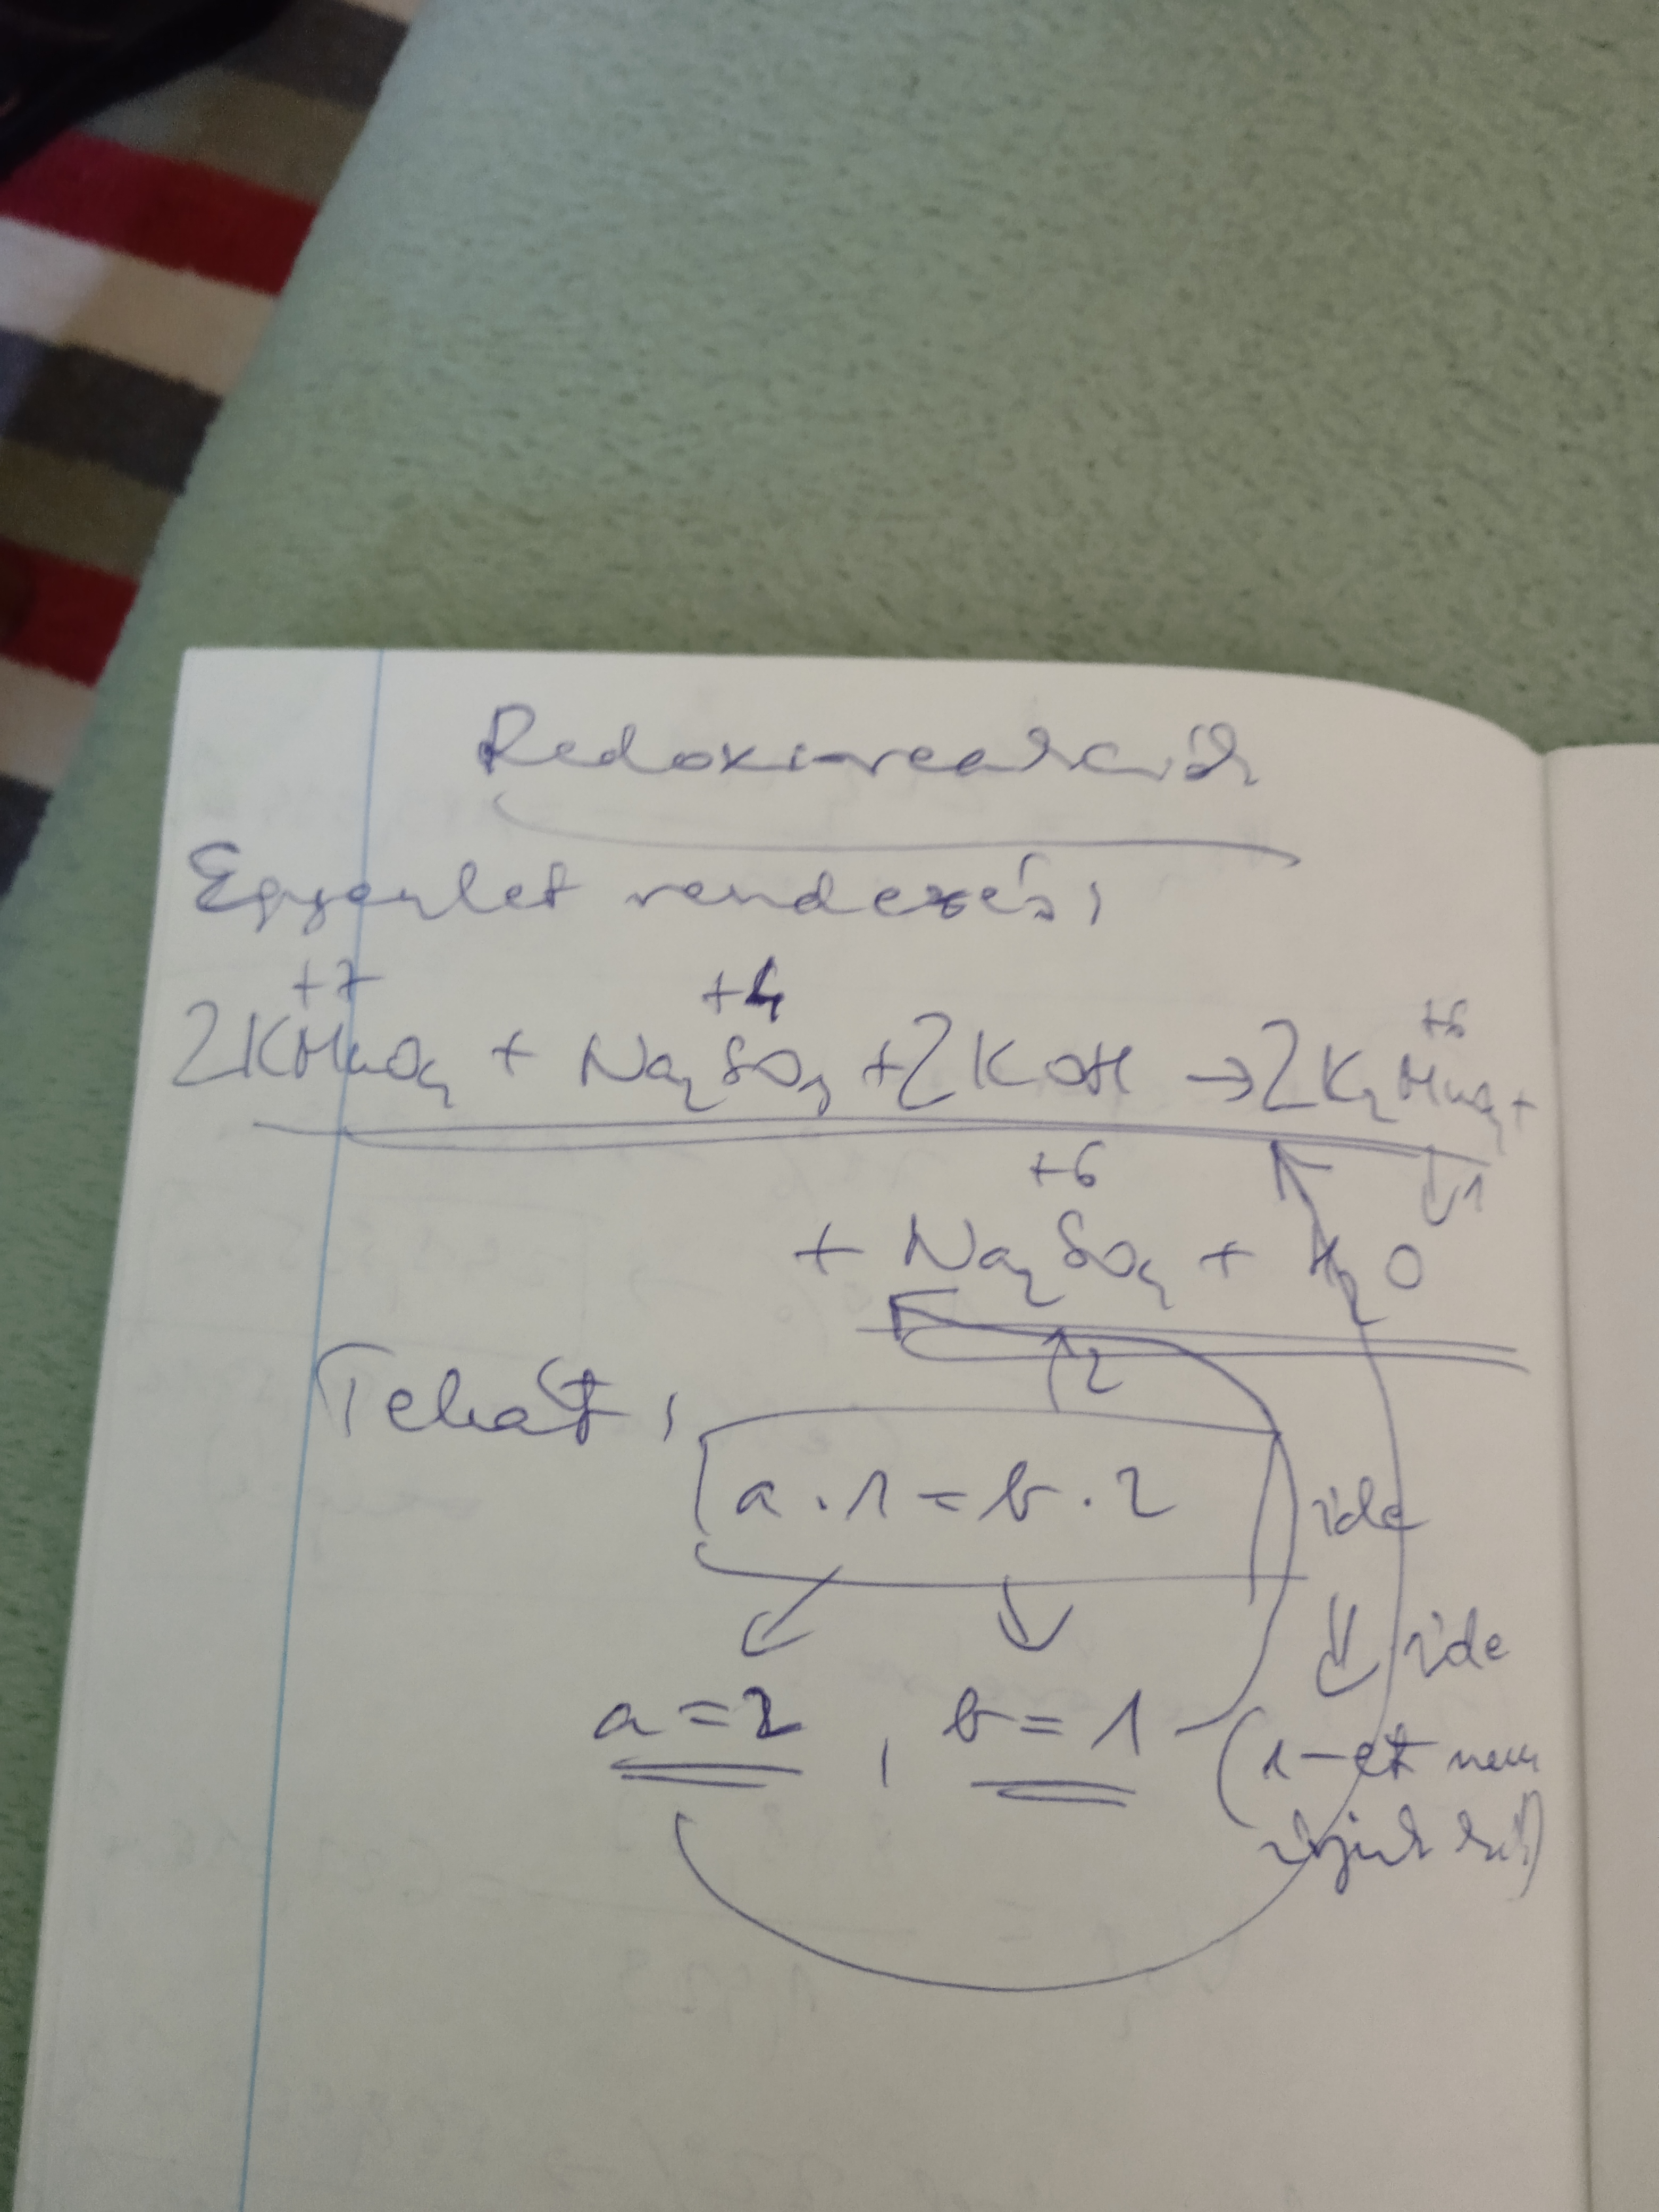 Redoxi-reakciók
Egyenlet rendezés:
+7 +4 +6
2KMnO₄ + Na₂SO₃ + 2KOH → 2K₂MnO₄ +
+6 ↓1
+ Na₂SO₄ + H₂O
↑2
Tehát:
a · 1 = b · 2 ide
ide
a = 2, b = 1 (1-et nem
írjuk ki!)